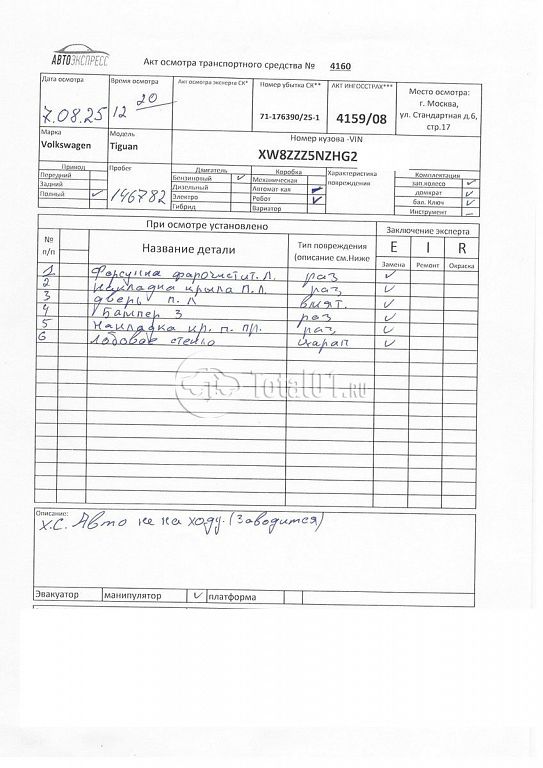 АВТОЭКСПРЕСС
Акт осмотра транспортного средства № 4160
Дата осмотра Время осмотра Акт осмотра эксперта СК* Номер убытка СК** АКТ ИНГОССТРАХ*** Место осмотра:
г. Москва,
ул. Стандартная д.6,
стр.17
7.08.25 12 20 71-176390/25-1 4159/08
Марка Модель Номер кузова -VIN
Volkswagen Tiguan XW8ZZZ5NZHG2
Привод Пробег Двигатель Коробка Характеристика повреждения Комплектация
Передний Бензиновый ✓ Механическая зап.колесо ✓
Задний Дизельный Автомат кая домкрат ✓
Полный ✓ 146782 Электро Робот ✓ бал. Ключ ✓
Гибрид Вариатор Инструмент –
При осмотре установлено Заключение эксперта
№ п/п Название детали Тип повреждения (описание см.Ниже E I R
Замена Ремонт Окраска
1 Форсунка фароочистит. Л. раз ✓
2 Накладка крыла П.Л. раз ✓
3 дверь п. Л вмят. ✓
4 Бампер З раз ✓
5 Накладка кр. п. пр. раз ✓
6 лобовое стекло царап ✓
Total01.RU
Описание:
Х.С. Авто не на ходу. (Заводится)
Эвакуатор манипулятор ✓ платформа